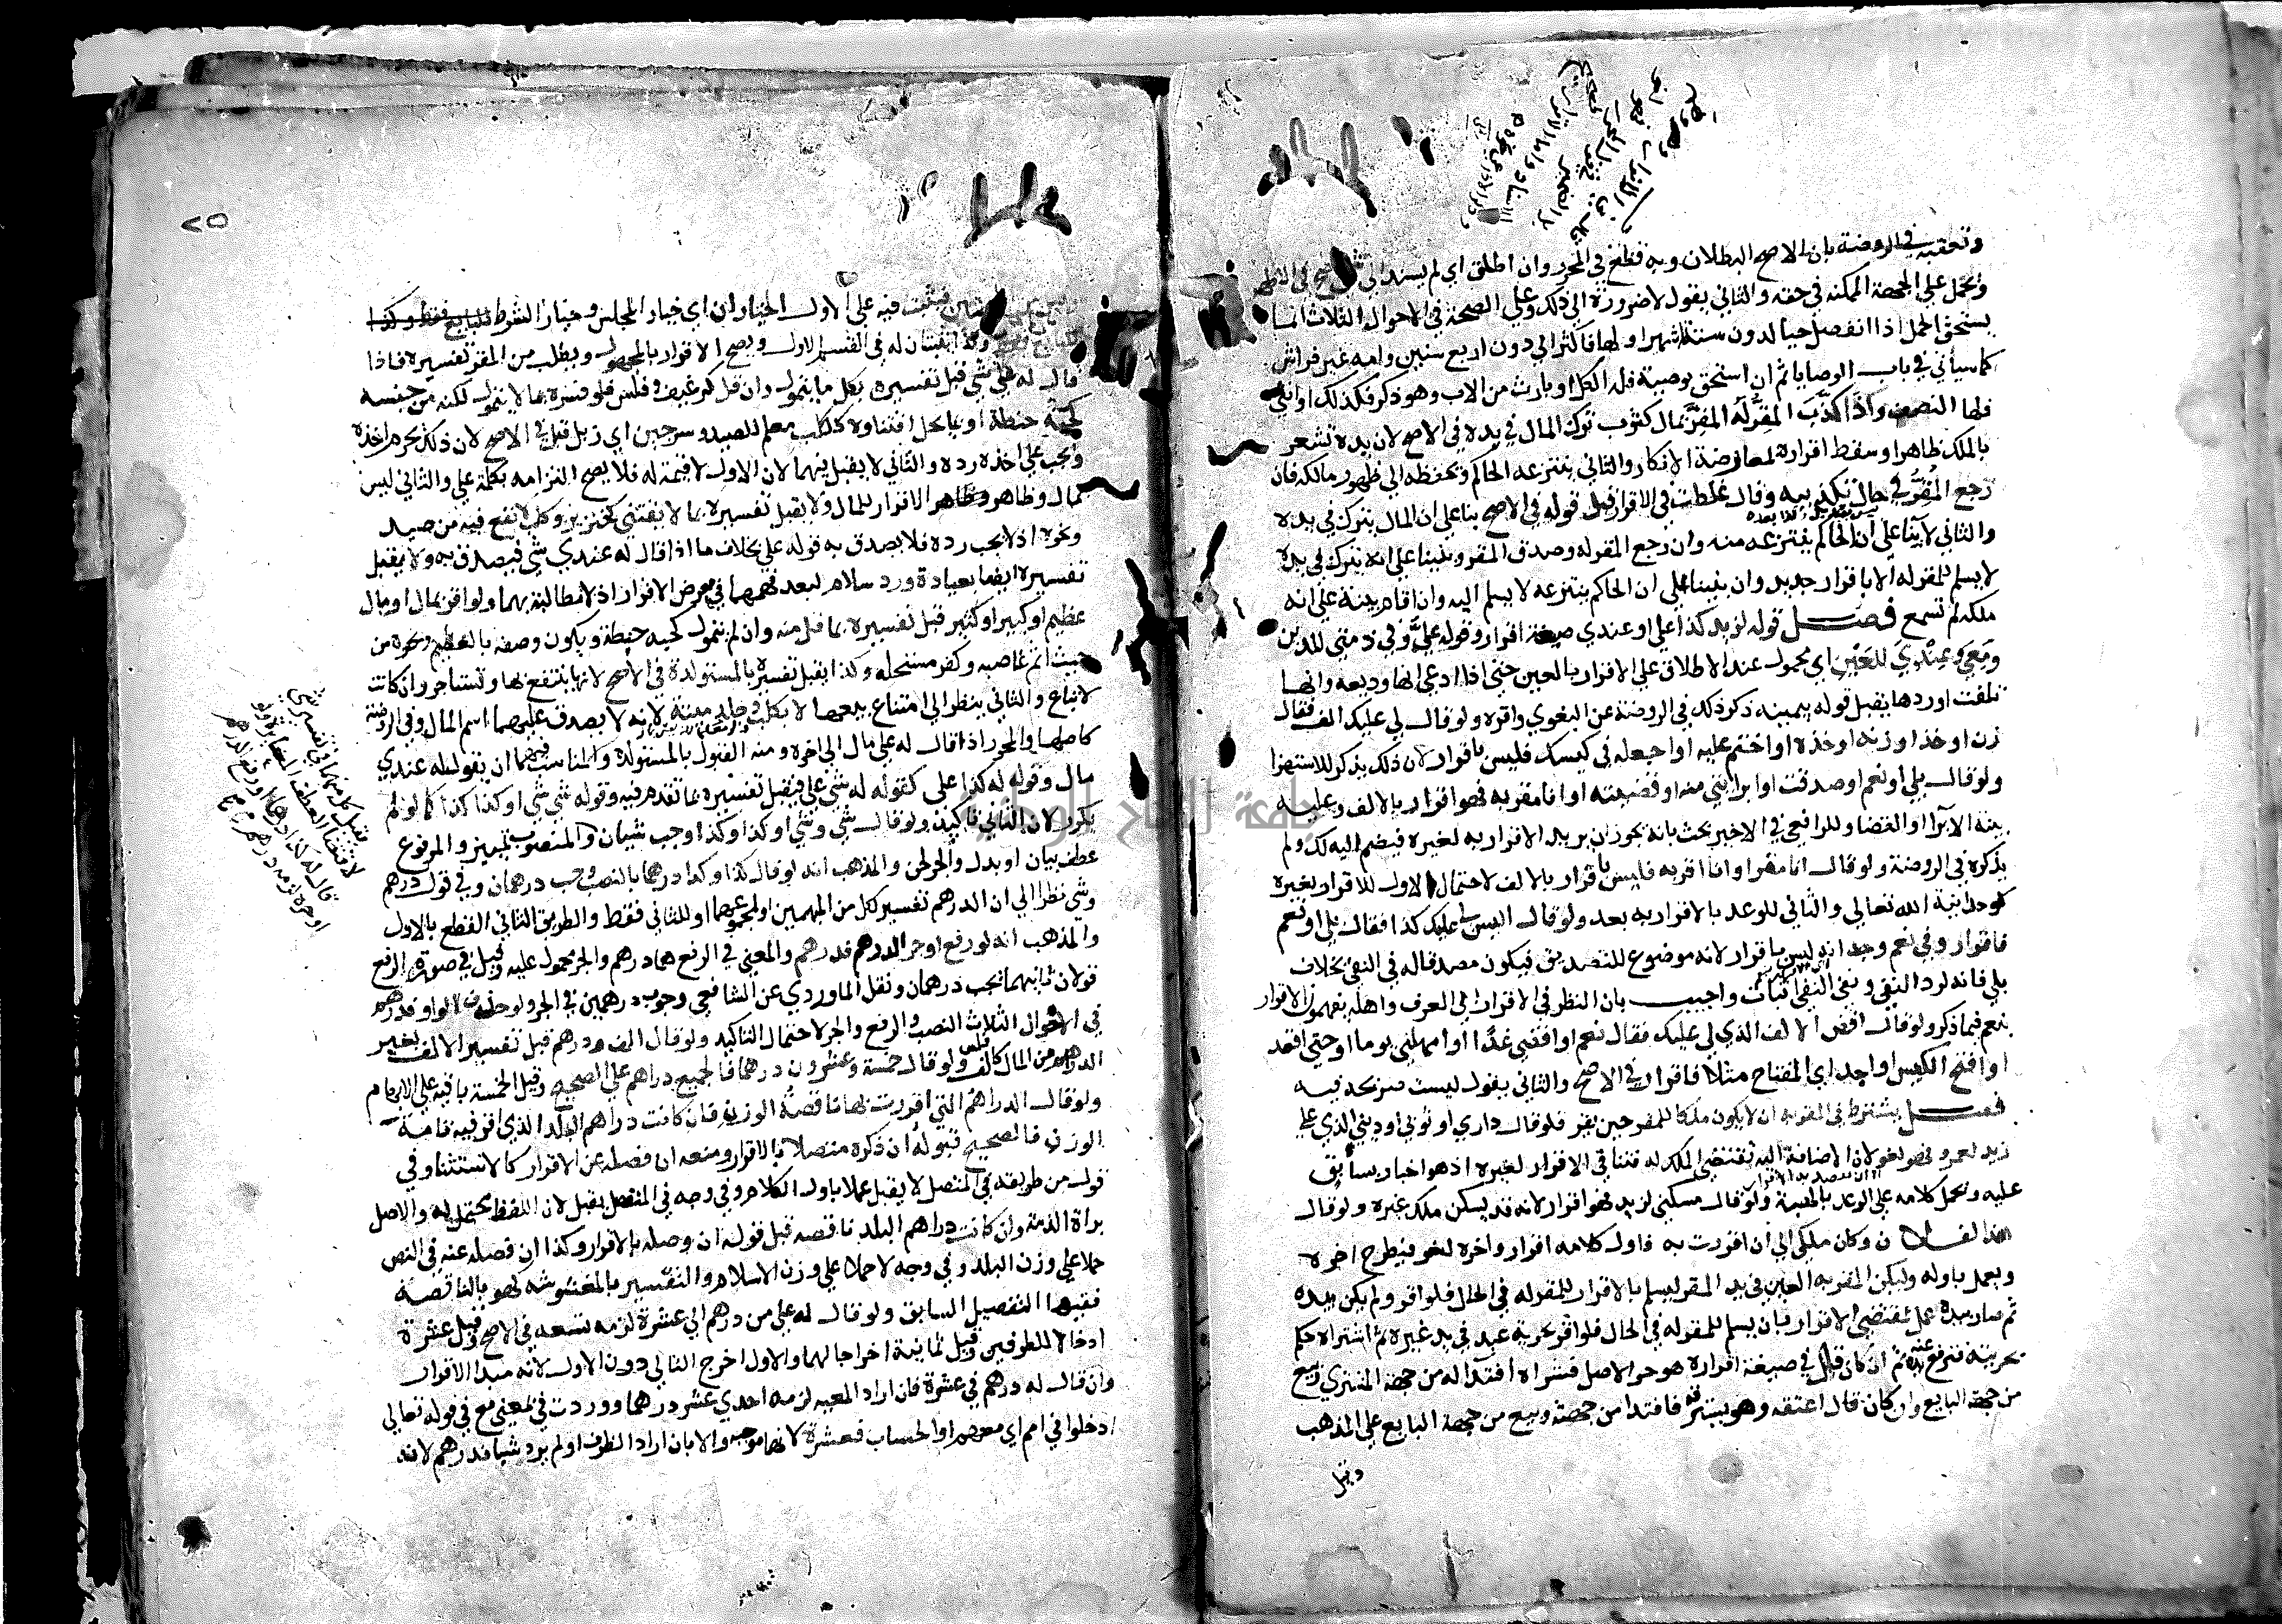 وتعقبه في الروضة بان الاصح البطلان وبه قطع في المحرر وان اطلق اي لم يسند الى شي صح في الاظهر
ويحمل علي الجهة الممكنة في حقه والثاني يقول لا ضرورة الي ذلك وعلي الصحة في الاحوال الثلاث انما
يستحق الحمل اذا انفصل حيا لدون ستة اشهر او لها فاكثر الي دون اربع سنين وامه غير فراش
كما سيأتي في باب الوصايا ثم ان استحق بوصية فله الكل او بارث من الاب وهو ذكر فكذلك او انثي
فلها النصف واذا كذب المقر له المقر بمال كثوب ترك المال في يده في الاصح لان يده تشعر
بالملك ظاهرا وسقط اقراره لمعارضة الانكار والثاني ينتزعه الحاكم ويحفظه الي ظهور مالكه فان
رجع المقر في حال تكذيبه وقال غلطت في الاقرار قبل قوله في الاصح بنا علي ان المال يترك في يده
والثاني لا بنا علي ان الحاكم ينتزعه منه وان رجع المقر له وصدق المقر وبنينا علي انه يترك في يده
لا يسلم للمقر له الا باقرار جديد وان بنينا علي ان الحاكم ينتزعه لا يسلم اليه وان اقام بينة علي انه
ملكه لم تسمع فصل قوله لزيد كذا علي او عندي صيغة اقرار وقوله علي وفي ذمتي للدين
ومعي وعندي للعين اي محمول عند الاطلاق علي الاقرار بالعين حتي اذا ادعي انها وديعه وانها
تلفت او ردها يقبل قوله بيمينه ذكر ذلك في الروضة عن البغوي واقره ولو قال لي عليك الف فقال
زن او خذ او زنه او خذه او اختم عليه او اجعله في كيسك فليس باقرار لان ذلك يذكر للاستهزا
ولو قال بلي او نعم او صدقت او ابراتني منه او قضيته او انا مقر به فهو اقرار بالالف وعليه
بينة الابرا او القضا وللرافعي في الاخير بحث بانه يجوز ان يريد الاقرار به لغيره فيضم اليه لك ولم
يذكره في الروضة ولو قال انا مقر او انا اقر به فليس باقرار بالالف لاحتمال الاول للاقرار بغيره
كوحدانية الله تعالي والثاني للوعد بالاقرار به بعد ولو قال اليس لي عليك كذا فقال بلي او نعم
فاقرار وفي نعم وجه انه ليس باقرار لانه موضوع للتصديق فيكون مصدقا له في النفي بخلاف
بلي فانه لرد النفي ونفي النفي اثبات واجيب بان النظر في الاقرار الي العرف واهله يفهمون الاقرار
بنعم فيما ذكر ولو قال اقض الالف الذي لي عليك فقال نعم او اقضي غدا او امهلني يوما او حتي اقعد
او افتح الكيس او اجد اي المفتاح مثلا فاقرار في الاصح والثاني يقول ليست صريحه فيه
فصل يشترط في المقر به ان لا يكون ملكا للمقر حين يقر فلو قال داري او ثوبي او ديني الذي علي
زيد لعمرو فهو لغو لان الاضافة اليه تقتضي الملك له فتنافي الاقرار لغيره اذ هو اخبار بسابق
عليه ويحمل كلامه علي الوعد بالهبة ولو قال مسكني لزيد فهو اقرار لانه قد يسكن ملك غيره ولو قال
هذا لفلان وكان ملكي الي ان اقررت به فاول كلامه اقرار واخره لغو فيطرح اخره
ويعمل باوله وليكن المقر به العين في يد المقر ليسلم بالاقرار للمقر له في الحال فلو اقر ولم يكن بيده
ثم صار بيده عمل بمقتضي الاقرار فبان يسلم للمقر له في الحال فلو اقر بحرية عبد في يد غيره ثم اشتراه حكم
بحريته ثم ان كان قال في صيغة اقراره هو حر الاصل فشراه افتدا له من جهة المشتري وبيع
من جهة البايع وان كان قال اعتقه وهو يسترقه فافتدا من جهته وبيع من جهة البايع علي المذهب
وقيل
٧٥
فيثبت فيه علي الاول الخياران اي خيار المجلس وخيار الشرط للبايع فقط وكذا
يثبتان له في القسم الاول ويصح الاقرار بالمجهول ويطلب من المقر تفسيره فاذا
قال له علي شي قبل تفسيره بكل ما يتمول وان قل كرغيف وفلس فلو فسره بما لا يتمول لكنه من جنسه
كحبة حنطة او بما يحل اقتناوه ككلب معلم للصيد وسرجين اي زبل قبل في الاصح لان ذلك يحرم اخذه
ويجب علي اخذه رده والثاني لا يقبل فيهما لان الاول لا قيمة له فلا يصح التزامه بكلمة علي والثاني ليس
بمال وظاهر الاقرار للمال ولا يقبل تفسيره بما لا يقتني كخنزير وكلب لا نفع فيه من صيد
ونحوه اذ لا يجب رده فلا يصدق به قوله علي بخلاف ما اذا قال له عندي شي فيصدق به ولا يقبل
تفسيره ايضا بعيادة ورد سلام لبعد فهمهما في معرض الاقرار اذ لا مطالبة بهما ولو اقر بمال او مال
عظيم او كبير او كثير قبل تفسيره بما قل منه وان لم يتمول كحبة حنطة ويكون وصفه بالعظيم ونحوه من
حيث اثم غاصبه وكفر مستحله وكذا يقبل تفسيره بالمستولدة في الاصح لانها ينتفع بها وتستاجر وان كانت
لا تباع والثاني ينظر الي امتناع بيعها لا بكلب وجلد ميتة لانه لا يصدق عليهما اسم المال وفي الروضة
كاصلها والمحرر اذا قال له علي مال الي اخره ومنه القبول بالمستولدة والمناسب فيهما ان يقول له عندي
مال وقوله له كذا علي كقوله له شي علي فيقبل تفسيره بما تقدم فيه وقوله شي شي او كذا كذا كما لو لم
يكرر لان الثاني تاكيد ولو قال شي وشي او كذا وكذا وجب شيان والمنصوب تمييز والمرفوع
عطف بيان او بدل والجر لحن والمذهب انه لو قال كذا وكذا درهما بالنصب وجب درهمان وفي قول درهم
وشي نظرا الي ان الدرهم تفسير لكل من المبهمين او لمجموعهما او للثاني فقط والطريق الثاني القطع بالاول
والمذهب انه لو رفع او جر الدرهم فدرهم والمعني في الرفع هما درهم والجر محمول عليه وقيل في صورة الرفع
قولان ثانيهما يجب درهمان ونقل الماوردي عن الشافعي وجوب درهمين في الجر ولو حذف الواو فدرهم
في الاحوال الثلاث النصب والرفع والجر لاحتمال التاكيد ولو قال الف ودرهم قبل تفسير الالف بغير
الدراهم من المال كالف فلس ولو قال خمسة وعشرون درهما فالجميع دراهم علي الصحيح وقيل الخمسة باقيه علي الابهام
ولو قال الدراهم التي اقررت بها ناقصة الوزن فان كانت دراهم البلد الذي اقر فيه تامة
الوزن فالصحيح قبوله ان ذكره متصلا بالاقرار ومنعه ان فصله عن الاقرار كالاستثنا وفي
قول من طريقه في المتصل لا يقبل عملا باول الكلام وفي وجه في المنفصل يقبل لان اللفظ يحتمل له والاصل
براة الذمة وان كانت دراهم البلد ناقصه قبل قوله ان وصله بالاقرار وكذا ان فصله عنه في النص
حملا علي وزن البلد وفي وجه لا حملا علي وزن الاسلام والتفسير بالمغشوشه كهو بالناقصة
ففيها التفصيل السابق ولو قال له علي من درهم الي عشرة لزمه تسعه في الاصح وقيل عشرة
ادخالا للطرفين وقيل ثمانية اخراجا لهما والاول اخرج الثاني دون الاول لانه مبدا الاقرار
وان قال له درهم في عشرة فان اراد المعيه لزمه احدي عشر درهما ووردت في بمعني مع في قوله تعالي
ادخلوا في امم اي معهم او الحساب فعشرة لانها موجبه والا بان اراد الظرف او لم يرد شيا فدرهم لانه
فيقبل كل منهما في تفسير شي
لاقتضا العطف المغايرة ولو
قال له كذا درهما او رفع الدرهم
او جره لزمه درهم